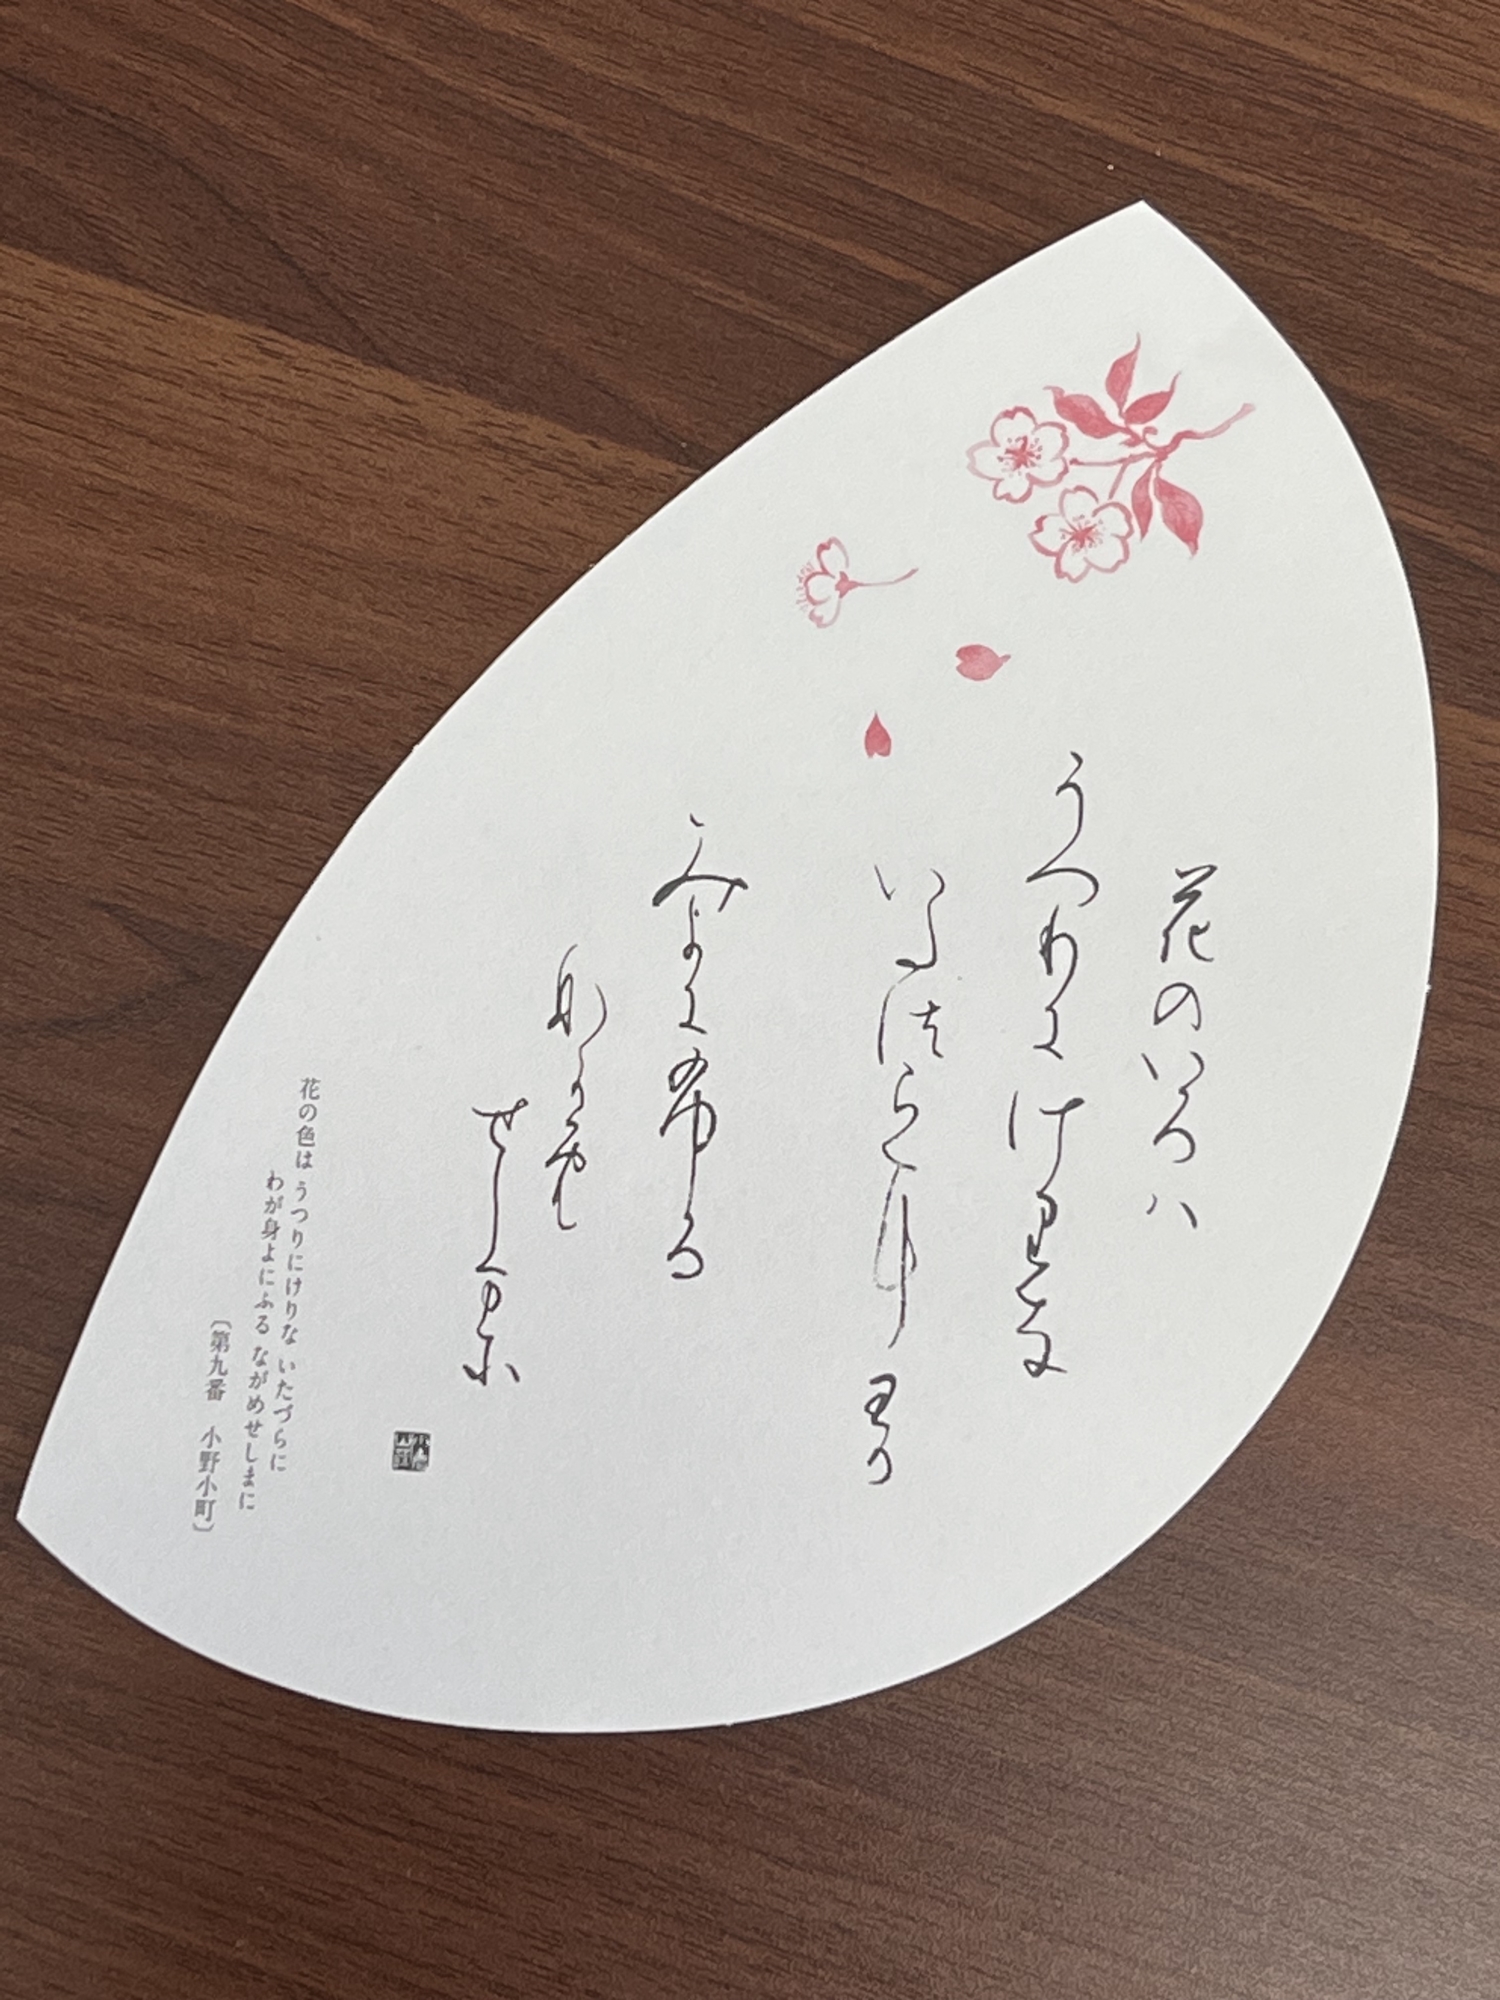 花のいろハ
うつりにけりな
いたつらにわか
みよにふる
なかめ
せしまに
花の色は うつりにけりな いたづらに
わが身よにふる ながめせしまに
〔第九番 小野小町〕